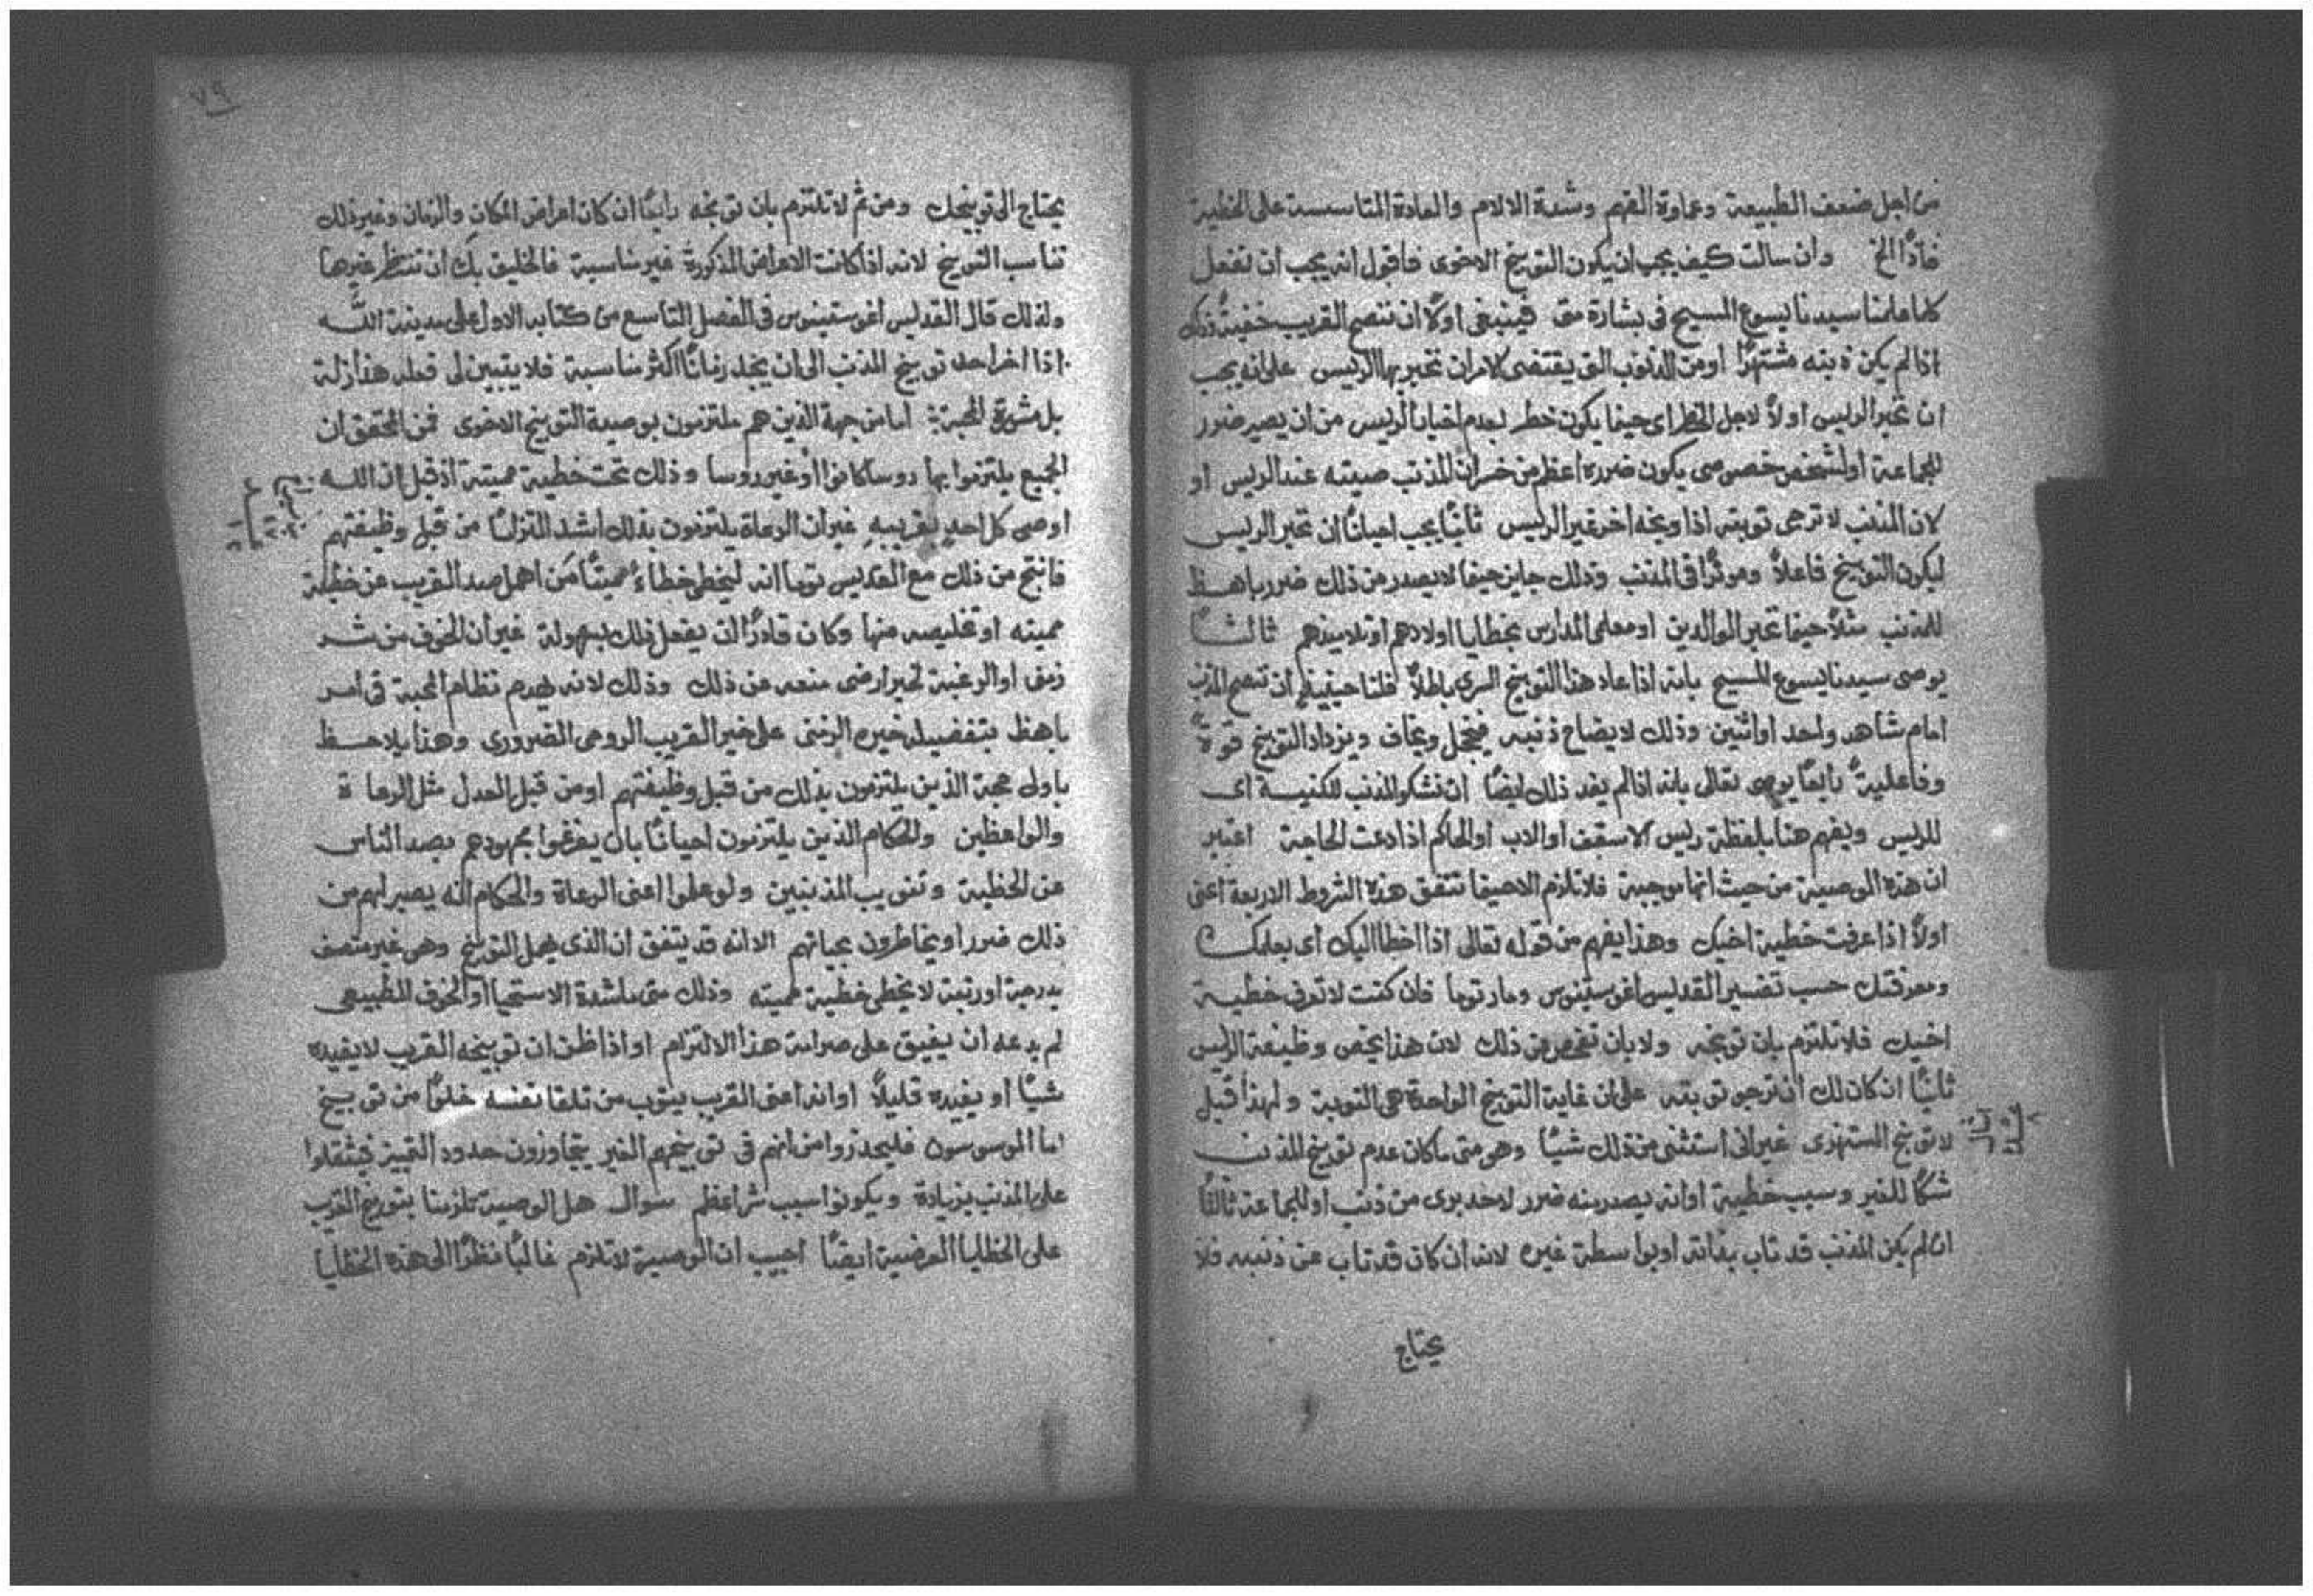 من اجل ضعف الطبيعة وغباوة الفهم وشدة الالام والعادة المتاسسة على الخطية
فاذًا الخ وان سالت كيف يجب ان يكون التوبيخ الاخوى فاقول انه يجب ان تفعل
كما علمنا سيدنا يسوع المسيح فى بشارة متى فينبغى اولًا ان تنصح القريب خفيةً وذلك
اذا لم يكن ذنبه مشتهرًا او من الذنوب التى يقتضى الامر ان تخبر بها الريس على انه يجب
ان تخبر الريس اولًا لاجل الخطر اى حينما يكون خطر لعدم اخبار الريس من ان يصير ضرر
للجماعة او لشخص خصوصى يكون ضرره اعظم من خسران المذنب صيته عند الريس او
لان المذنب لا ترجى توبته اذا وبخه اخر غير الريس ثانيًا يجب احيانًا ان تخبر الريس
ليكون التوبيخ فاعلًا وموثرًا فى المذنب وذلك جايز حينما لا يصدر من ذلك ضرر باهظ
للمذنب مثلًا حينما تخبر الوالدين او معلمى المدارس بخطايا اولادهم او تلاميذهم ثالثًا
يوصى سيدنا يسوع المسيح بانه اذا عاد هذا التوبيخ السرى باطلًا فلنا حينيذٍ ان ننصح المذنب
امام شاهد واحد او اثنين وذلك لايضاح ذنبه فيخجل ويخاف ويزداد التوبيخ قوةً
وفاعليةً رابعًا يوصى تعالى بانه اذا لم يفد ذلك ايضًا ان نشكو المذنب للكنيسة اى
للريس ويفهم هنا بلفظة ريس الاسقف او الاب او الحاكم اذا دعت الحاجة اعتبر
ان هذه الوصية من حيث انها موجبة فلا تلزم الا حينما تتفق هذه الشروط الاربعة اعنى
اولًا اذا عرفت خطية اخيك وهذا يفهم من قوله تعالى اذا اخطا اليك اى بعلمك
ومعرفتك حسب تفسير القديس اغوستينوس ومار توما فان كنت لا تعرف خطية
اخيك فلا تلتزم بان توبخه ولا بان تفحص عن ذلك لان هذا يخص وظيفة الريس
ثانيًا ان كان لك ان ترجو توبته على ان غاية التوبيخ الواحدة هى التوبة ولهذا قيل
لا توبخ المستهزى غير انى استثنى من ذلك شيًا وهو متى ما كان عدم توبيخ المذنب
شكًا للغير وسبب خطية او انه يصدر منه ضرر لاحد برى من ذنب او للجماعة ثالثًا
ان لم يكن المذنب قد تاب بذاته او بواسطة غيره لانه ان كان قد تاب عن ذنبه فلا
يحتاج
٧٩
يحتاج الى توبيخك ومن ثم لا تلتزم بان توبخه رابعًا ان كان اعراض المكان والزمان وغير ذلك
تناسب التوبيخ لانه اذا كانت الاعراض المذكورة غير مناسبة فالخليق بك ان تنتظر غيرها
ولذلك قال القديس اغوستينوس فى الفصل التاسع من كتابه الاول على مدينة الله
اذا اخر احد توبيخ المذنب الى ان يجد زمانًا اكثر مناسبة فلا يتبين لى فعله هذا زلة
بل مشورة المحبة: اما من جهة الذين هم ملتزمون بوصية التوبيخ الاخوى فمن المحقق ان
الجميع يلتزموا بها روسا كانوا او غير روسا وذلك تحت خطية مميتة اذ قيل ان الله
اوصى كل احدٍ بقريبهِ غير ان الرعاة يلتزمون بذلك اشد التزامًا من قبل وظيفتهم
فانتج من ذلك مع القديس توما انه ليخطى خطاءً مميتًا مَن اهمل صد القريب عن خطية
مميته او تخليصه منها وكان قادرًا ان يفعل ذلك بسهولة غير ان الخوف من شر
زمنى او الرغبة لخير ارضى منعه عن ذلك وذلك لانه يهدم نظام المحبة فى امر
باهظ بتفضيله خيره الزمنى على خير القريب الروحى الضرورى وهذا يلاحظ
باولى حجة الذين يلتزمون بذلك من قبل وظيفتهم او من قبل العدل مثل الرعاة
والواعظين والحكام الذين يلتزمون احيانًا بان يفرغوا مجهودهم بصد الناس
عن الخطية وتتويب المذنبين ولو علموا اعنى الرعاة والحكام انه يصير لهم من
ذلك ضرر او يخاطرون بحياتهم الا انه قد يتفق ان الذى يهمل التوبيخ وهو غير متصف
بدرجة او رتبة لا يخطى خطية مميته وذلك متى ما شدة الاستحيا او الخوف الطبيعى
لم يدعه ان يفيق على صرامة هذا الالتزام او اذا ظن ان توبيخه القريب لا يفيده
شيًا او يفيده قليلًا او انه اعنى القريب يتوب من تلقا نفسه خلوًا من توبيخ
اما الموسوسون فليحذروا من انهم فى توبيخهم الغير يتجاوزون حدود التمييز فيثقلوا
على المذنب بزيادة ويكونوا سبب شر اعظم سوال هل الوصية تلزمنا بتوبيخ القريب
على الخطايا العرضية ايضًا اجيب ان الوصية لا تلزم غالبًا نظرًا الى هذه الخطايا